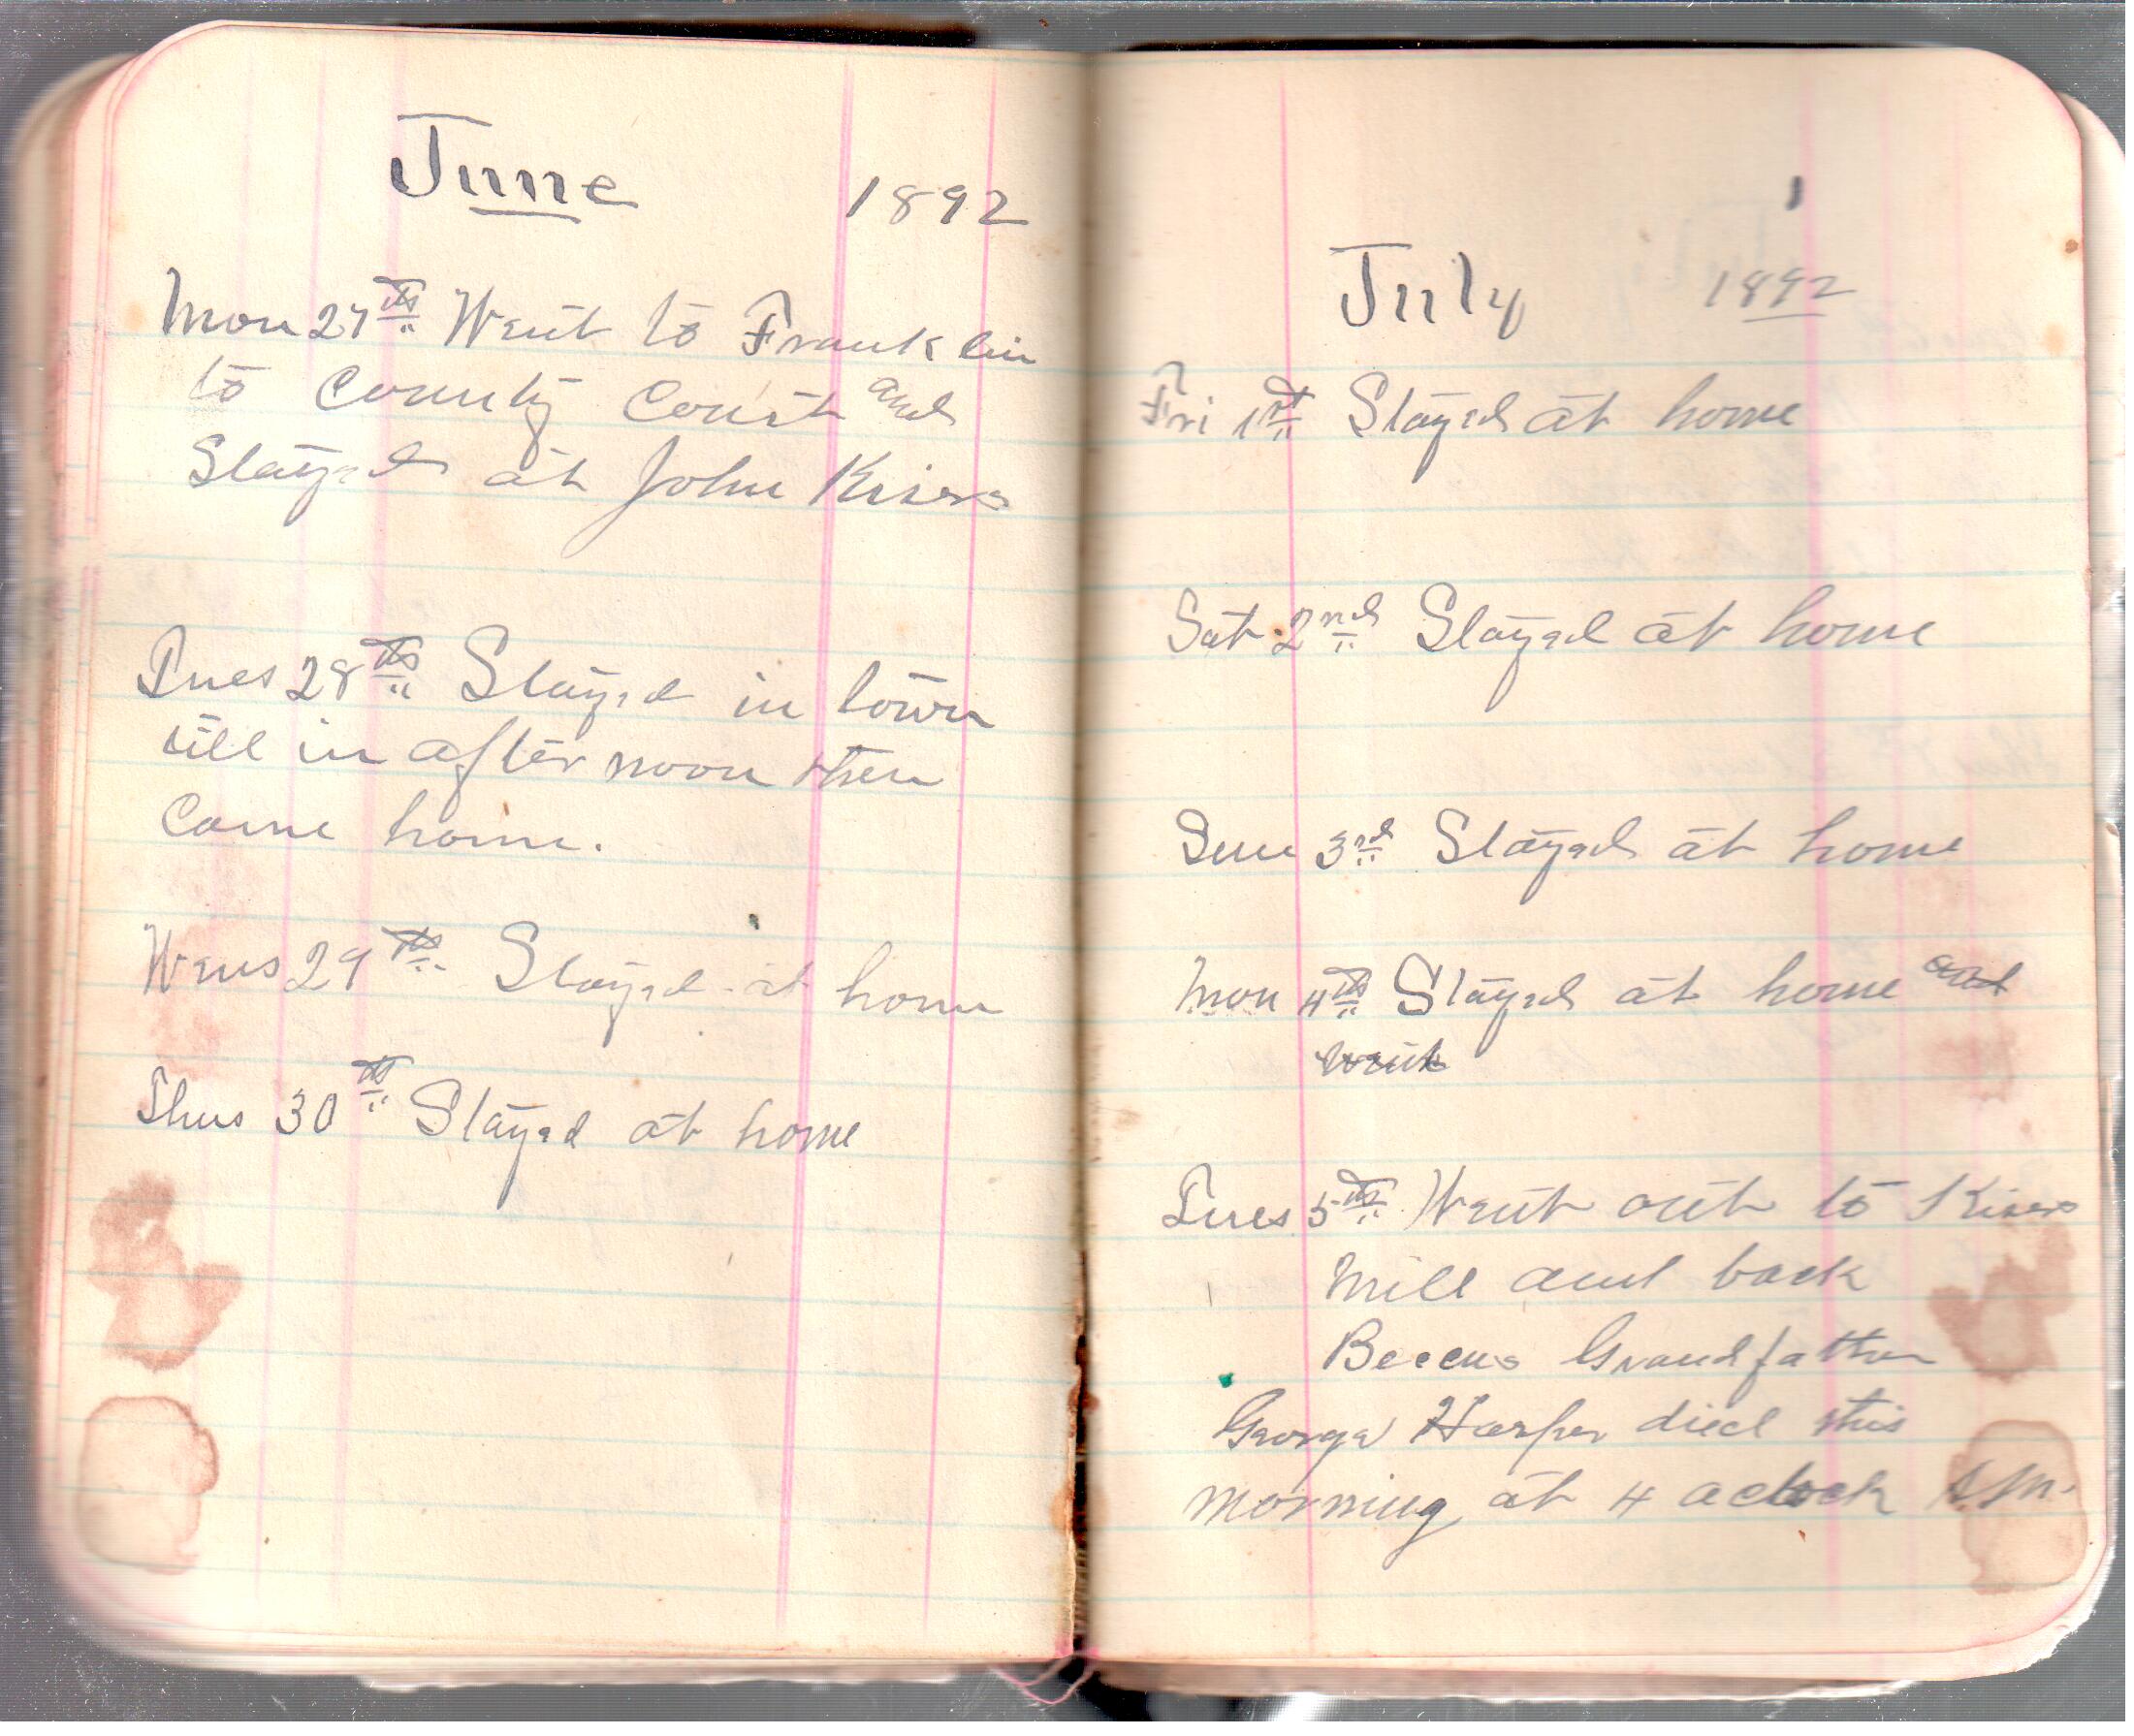 June 1892
Mon 27th Went to Franklin
to County Court and
Stayed at John Kisers
Tues 28th Stayed in town
till in after noon then
Came home.
Wens 29th Stayed at home
Thus 30th Stayed at home
1
July 1892
Fri 1st Stayed at home
Sat 2nd Stayed at home
Sun 3rd Stayed at home
Mon 4th Stayed at home and
went
Tues 5th Went out to Kisers
Mill and back
Grandfather
George Harper died this
morning at 4 aclock AM.